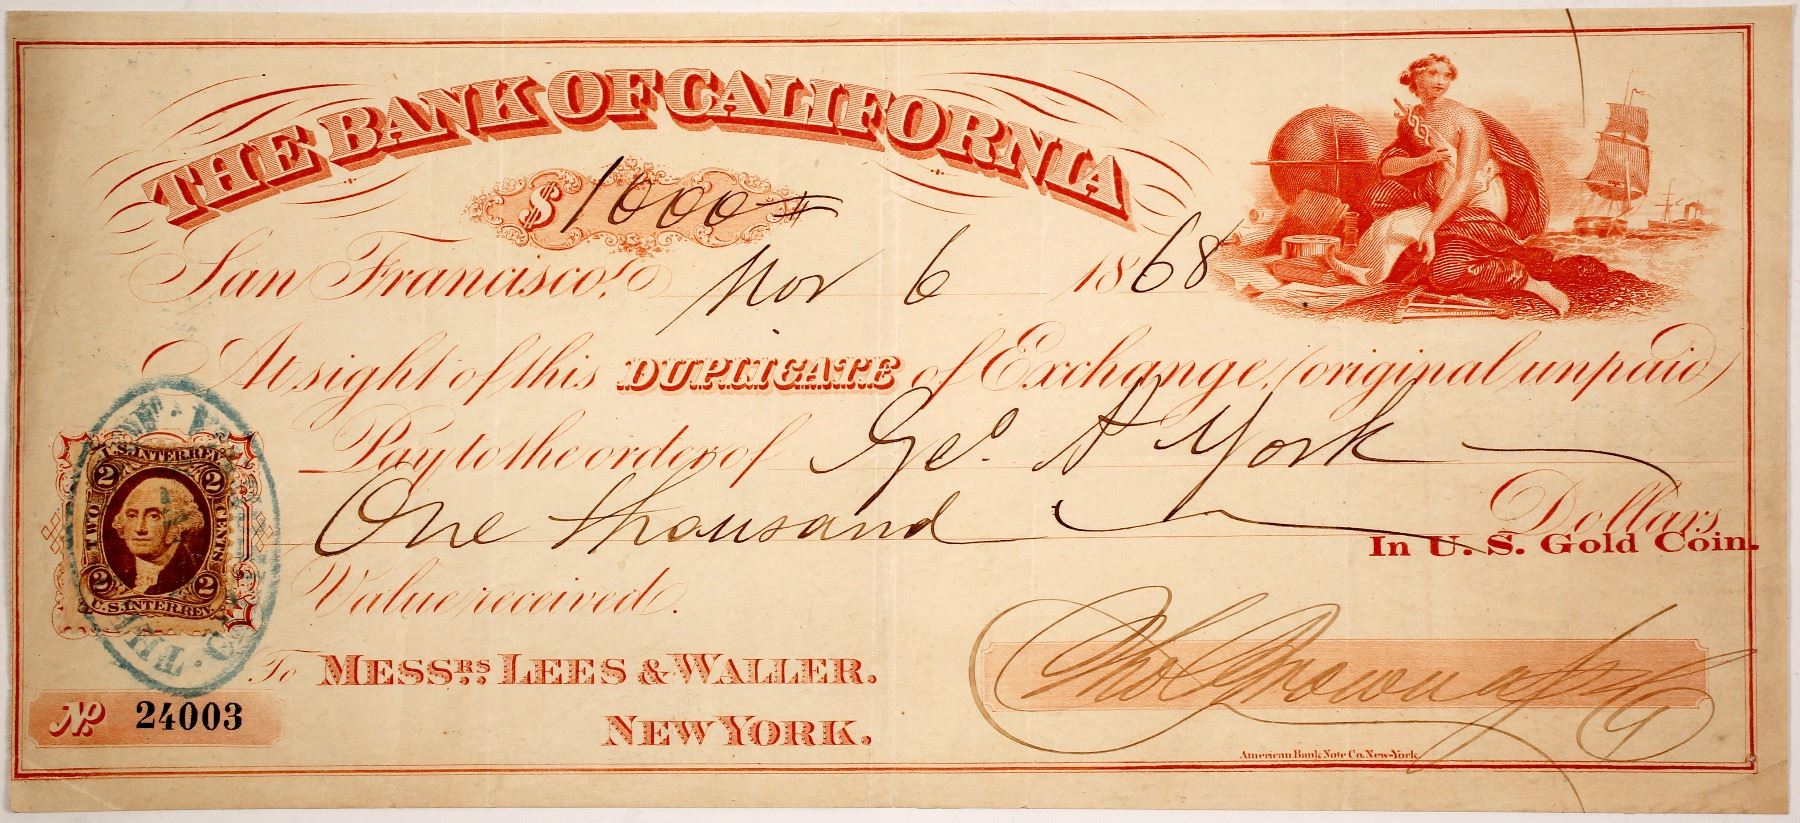 THE BANK OF CALIFORNIA
$ 1000
San Francisco, Nov 6 1868
At sight of this DUPLICATE of Exchange, (original unpaid)
Pay to the order of Geo. A York
One Thousand Dollars
In U. S. Gold Coin.
Value received.
To MESSRS. LEES & WALLER.
NEW YORK.
No. 24003
U.S. INTER. REV.
2 2
TWO CENTS
2 2
U.S. INTER. REV.
THE
Thos Brown
American Bank Note Co. New-York.